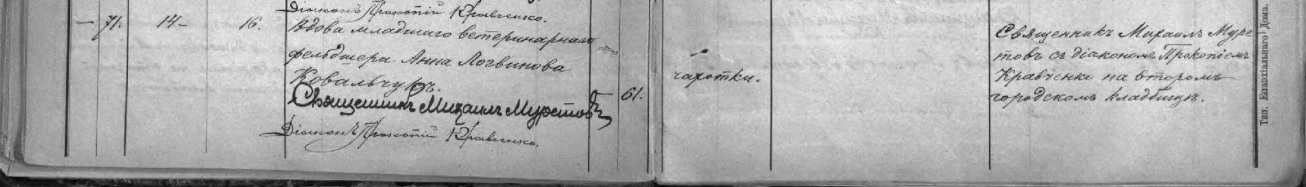 Діаконъ Прокопій Кравченко.
— 71. 14 — 16. Вдова младшаго ветеринарнаго
фельдшера Анна Логвинова
Ковальчукъ.
Священникъ Михаилъ Муретовъ
Діаконъ Прокопій Кравченко.
61.
чахотки.
Священникъ Михаилъ Муре
товъ съ діакономъ Прокопіемъ
Кравченко на второмъ
городскомъ кладбищѣ.
Тип. Епархіальнаго Дома.